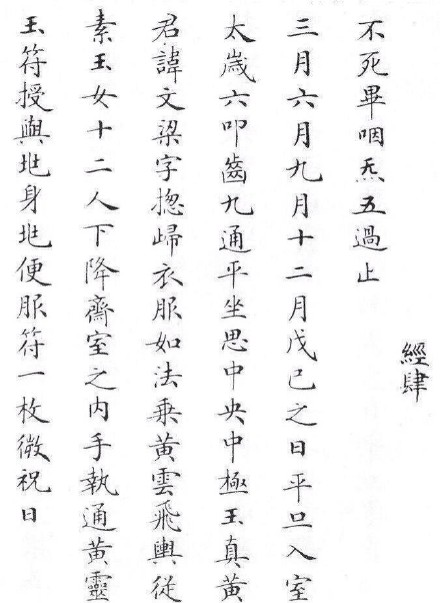 經肆
不死畢咽炁五過止
三月六月九月十二月戊巳之日平旦入室
太歲六叩齒九通平坐思中央中極玉真黄
君諱文梁字揔歸衣服如法乗黄雲飛輿從
素玉女十二人下降齋室之内手執通黄靈
玉符授與兆身兆便服符一枚微祝曰